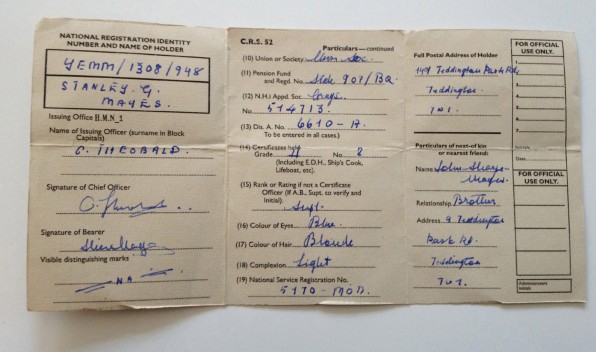 NATIONAL REGISTRATION IDENTITY
NUMBER AND NAME OF HOLDER
YEMM/1308/948
STANLEY. G.
MAYES.
Issuing Office H.M.N_1
Name of Issuing Officer (surname in Block
Capitals)
C. THEOBALD.
Signature of Chief Officer
Signature of Bearer
Visible distinguishing marks
NA
C.R.S. 52
Particulars—continued
(10) Union or Society
(11) Pension Fund
and Regd. No. 907/BQ.
(12) N.H.I Appd. Soc.
No. 514713.
(13) Dis. A. No. 6610 - A.
To be entered in all cases.)
(14) Certificates held
Grade No.
(Including E.D.H., Ship's Cook,
Lifeboat, etc).
(15) Rank or Rating if not a Certificate
Officer (If A.B., Supt. to verify and
Initial).
(16) Colour of Eyes Blue.
(17) Colour of Hair Blonde
(18) Complexion Light
(19) National Service Registration No.
5170 - MOD.
Full Postal Address of Holder
Teddington Park Rd,
Teddington.
Particulars of next-of kin
or nearest friend:
Name John
Relationship Brother.
Address 9 Teddington
Park Rd.
Teddington
FOR OFFICIAL
USE ONLY.
Date
FOR OFFICIAL
USE ONLY.
Administrators
Initials